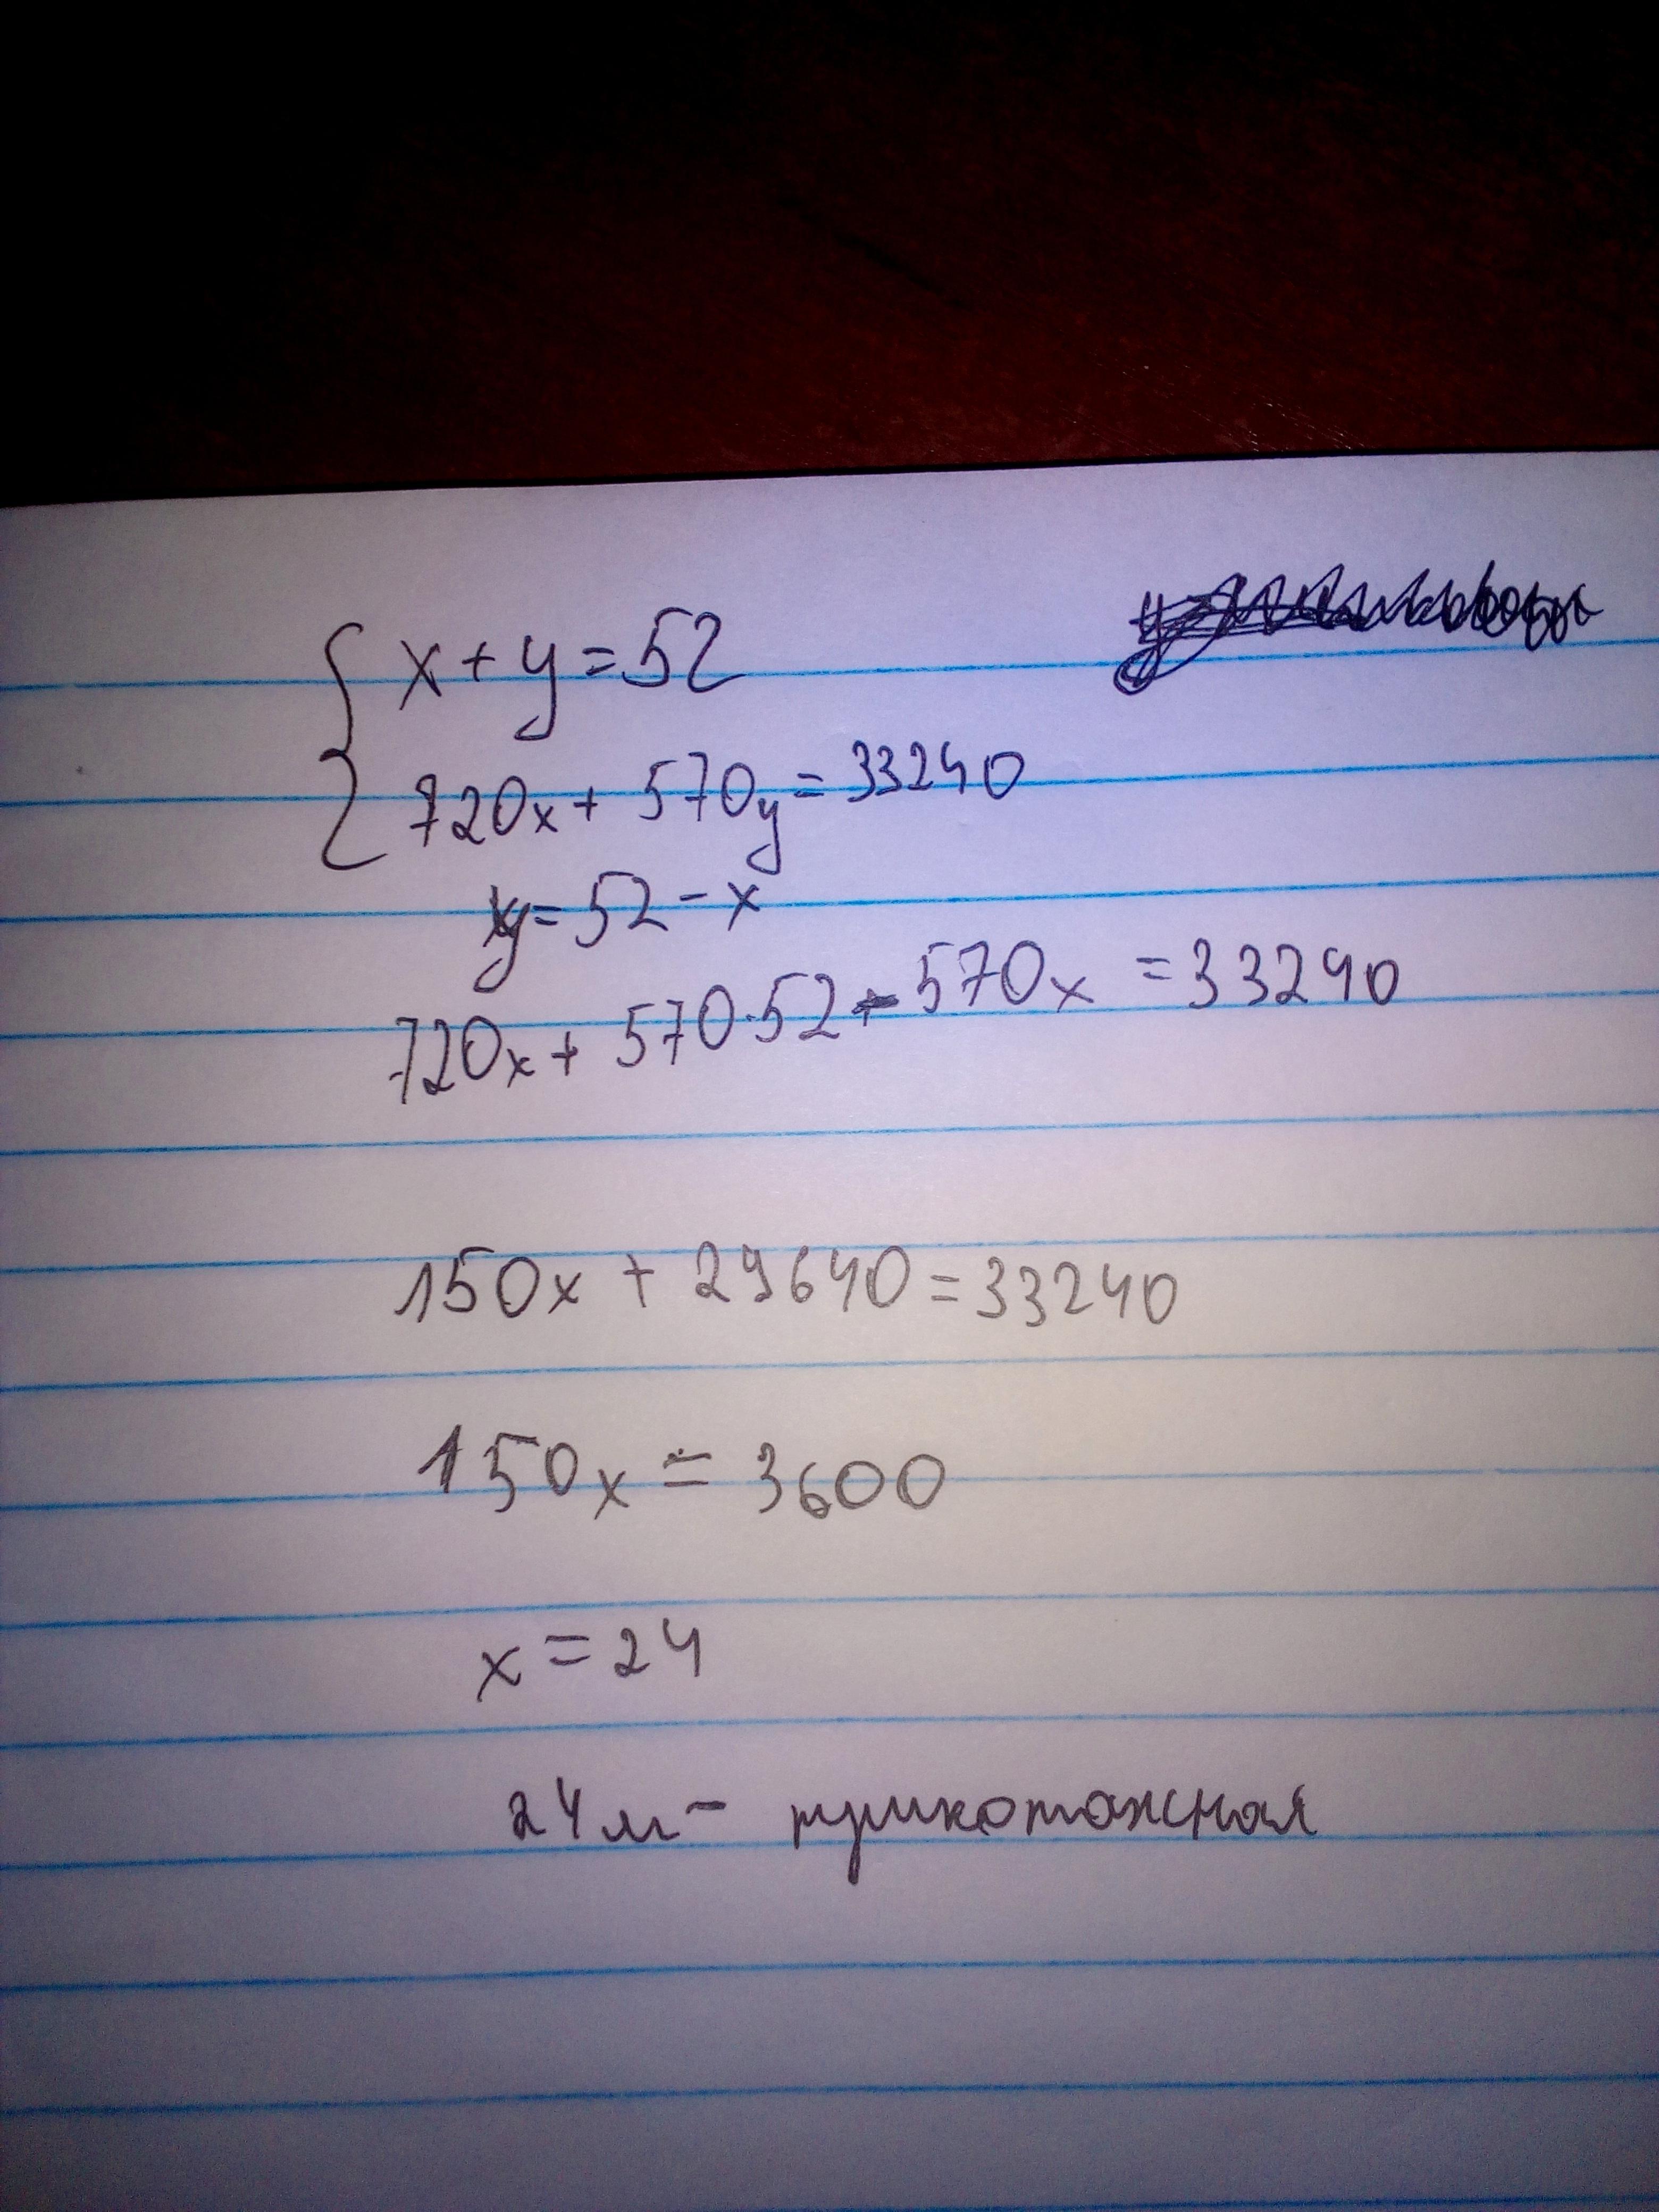 x+y=52
720x+570y=33240
y=52-x
720x+570·52-570x=33240
150x+29640=33240
150x=3600
x=24
24м- трикотажная